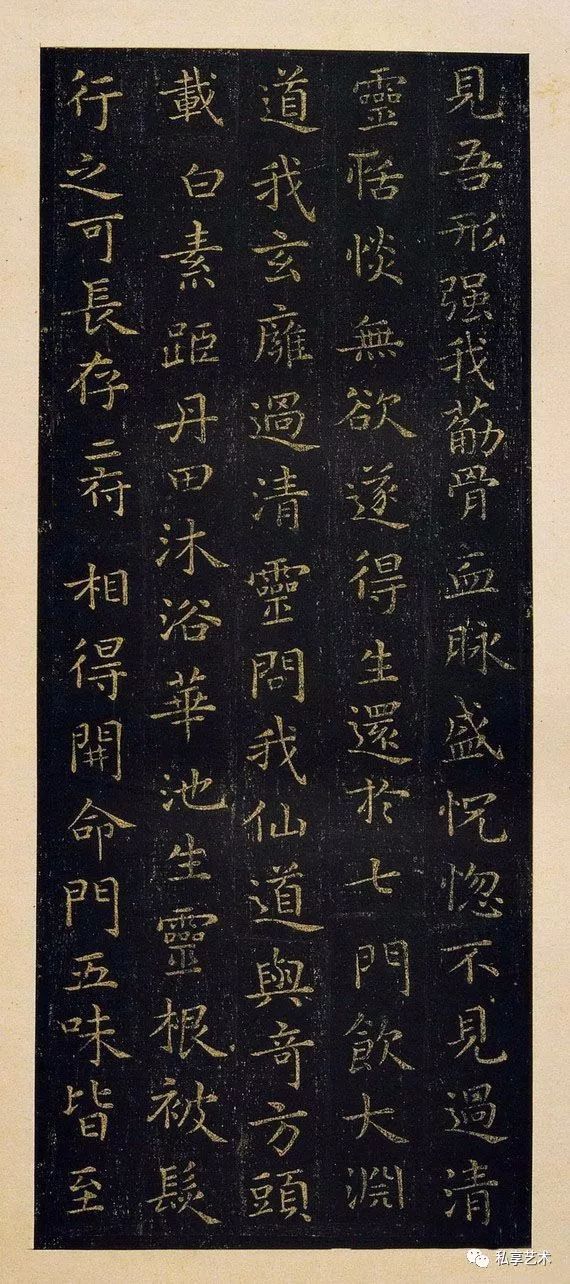 見吾形强我筋骨血脉盛怳惚不見過清
靈恬惔無欲遂得生還於七門飲大淵
道我玄廱過清靈問我仙道與奇方頭
載白素距丹田沐浴華池生靈根被髮
行之可長存二府相得開命門五味皆至
私享艺术